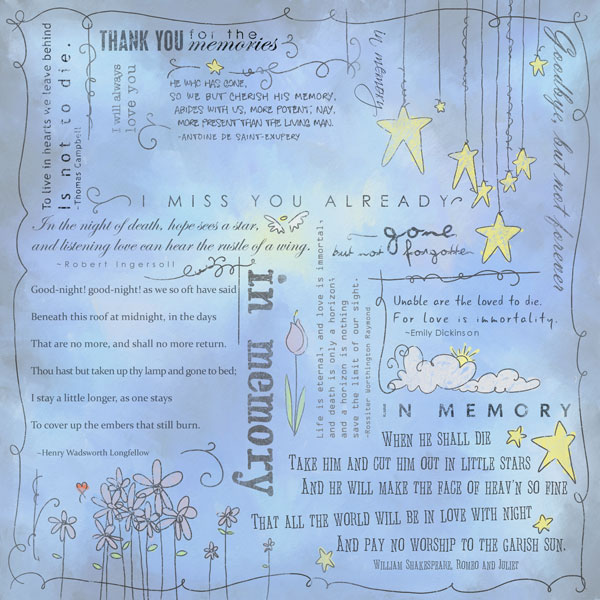 To live in hearts we leave behind
is not to die.
~Thomas Campbell
THANK YOU for the memories
I will always
love you
HE WHO HAS GONE,
SO WE BUT CHERISH HIS MEMORY,
ABIDES WITH US, MORE POTENT, NAY,
MORE PRESENT THAN THE LIVING MAN.
-ANTOINE DE SAINT-EXUPERY
in memory
Goodbye, but not forever
I MISS YOU ALREADY
In the night of death, hope sees a star,
and listening love can hear the rustle of a wing.
~Robert Ingersoll
gone
but not forgotten
Good-night! good-night! as we so oft have said
Beneath this roof at midnight, in the days
That are no more, and shall no more return.
Thou hast but taken up thy lamp and gone to bed;
I stay a little longer, as one stays
To cover up the embers that still burn.
~Henry Wadsworth Longfellow
in memory
Life is eternal, and love is immortal,
and death is only a horizon;
and a horizon is nothing
save the limit of our sight.
~Rossiter Worthington Raymond
Unable are the loved to die.
For love is immortality.
~Emily Dickinson
IN MEMORY
WHEN HE SHALL DIE
TAKE HIM AND CUT HIM OUT IN LITTLE STARS
AND HE WILL MAKE THE FACE OF HEAV'N SO FINE
THAT ALL THE WORLD WILL BE IN LOVE WITH NIGHT
AND PAY NO WORSHIP TO THE GARISH SUN.
WILLIAM SHAKESPEARE, ROMEO AND JULIET